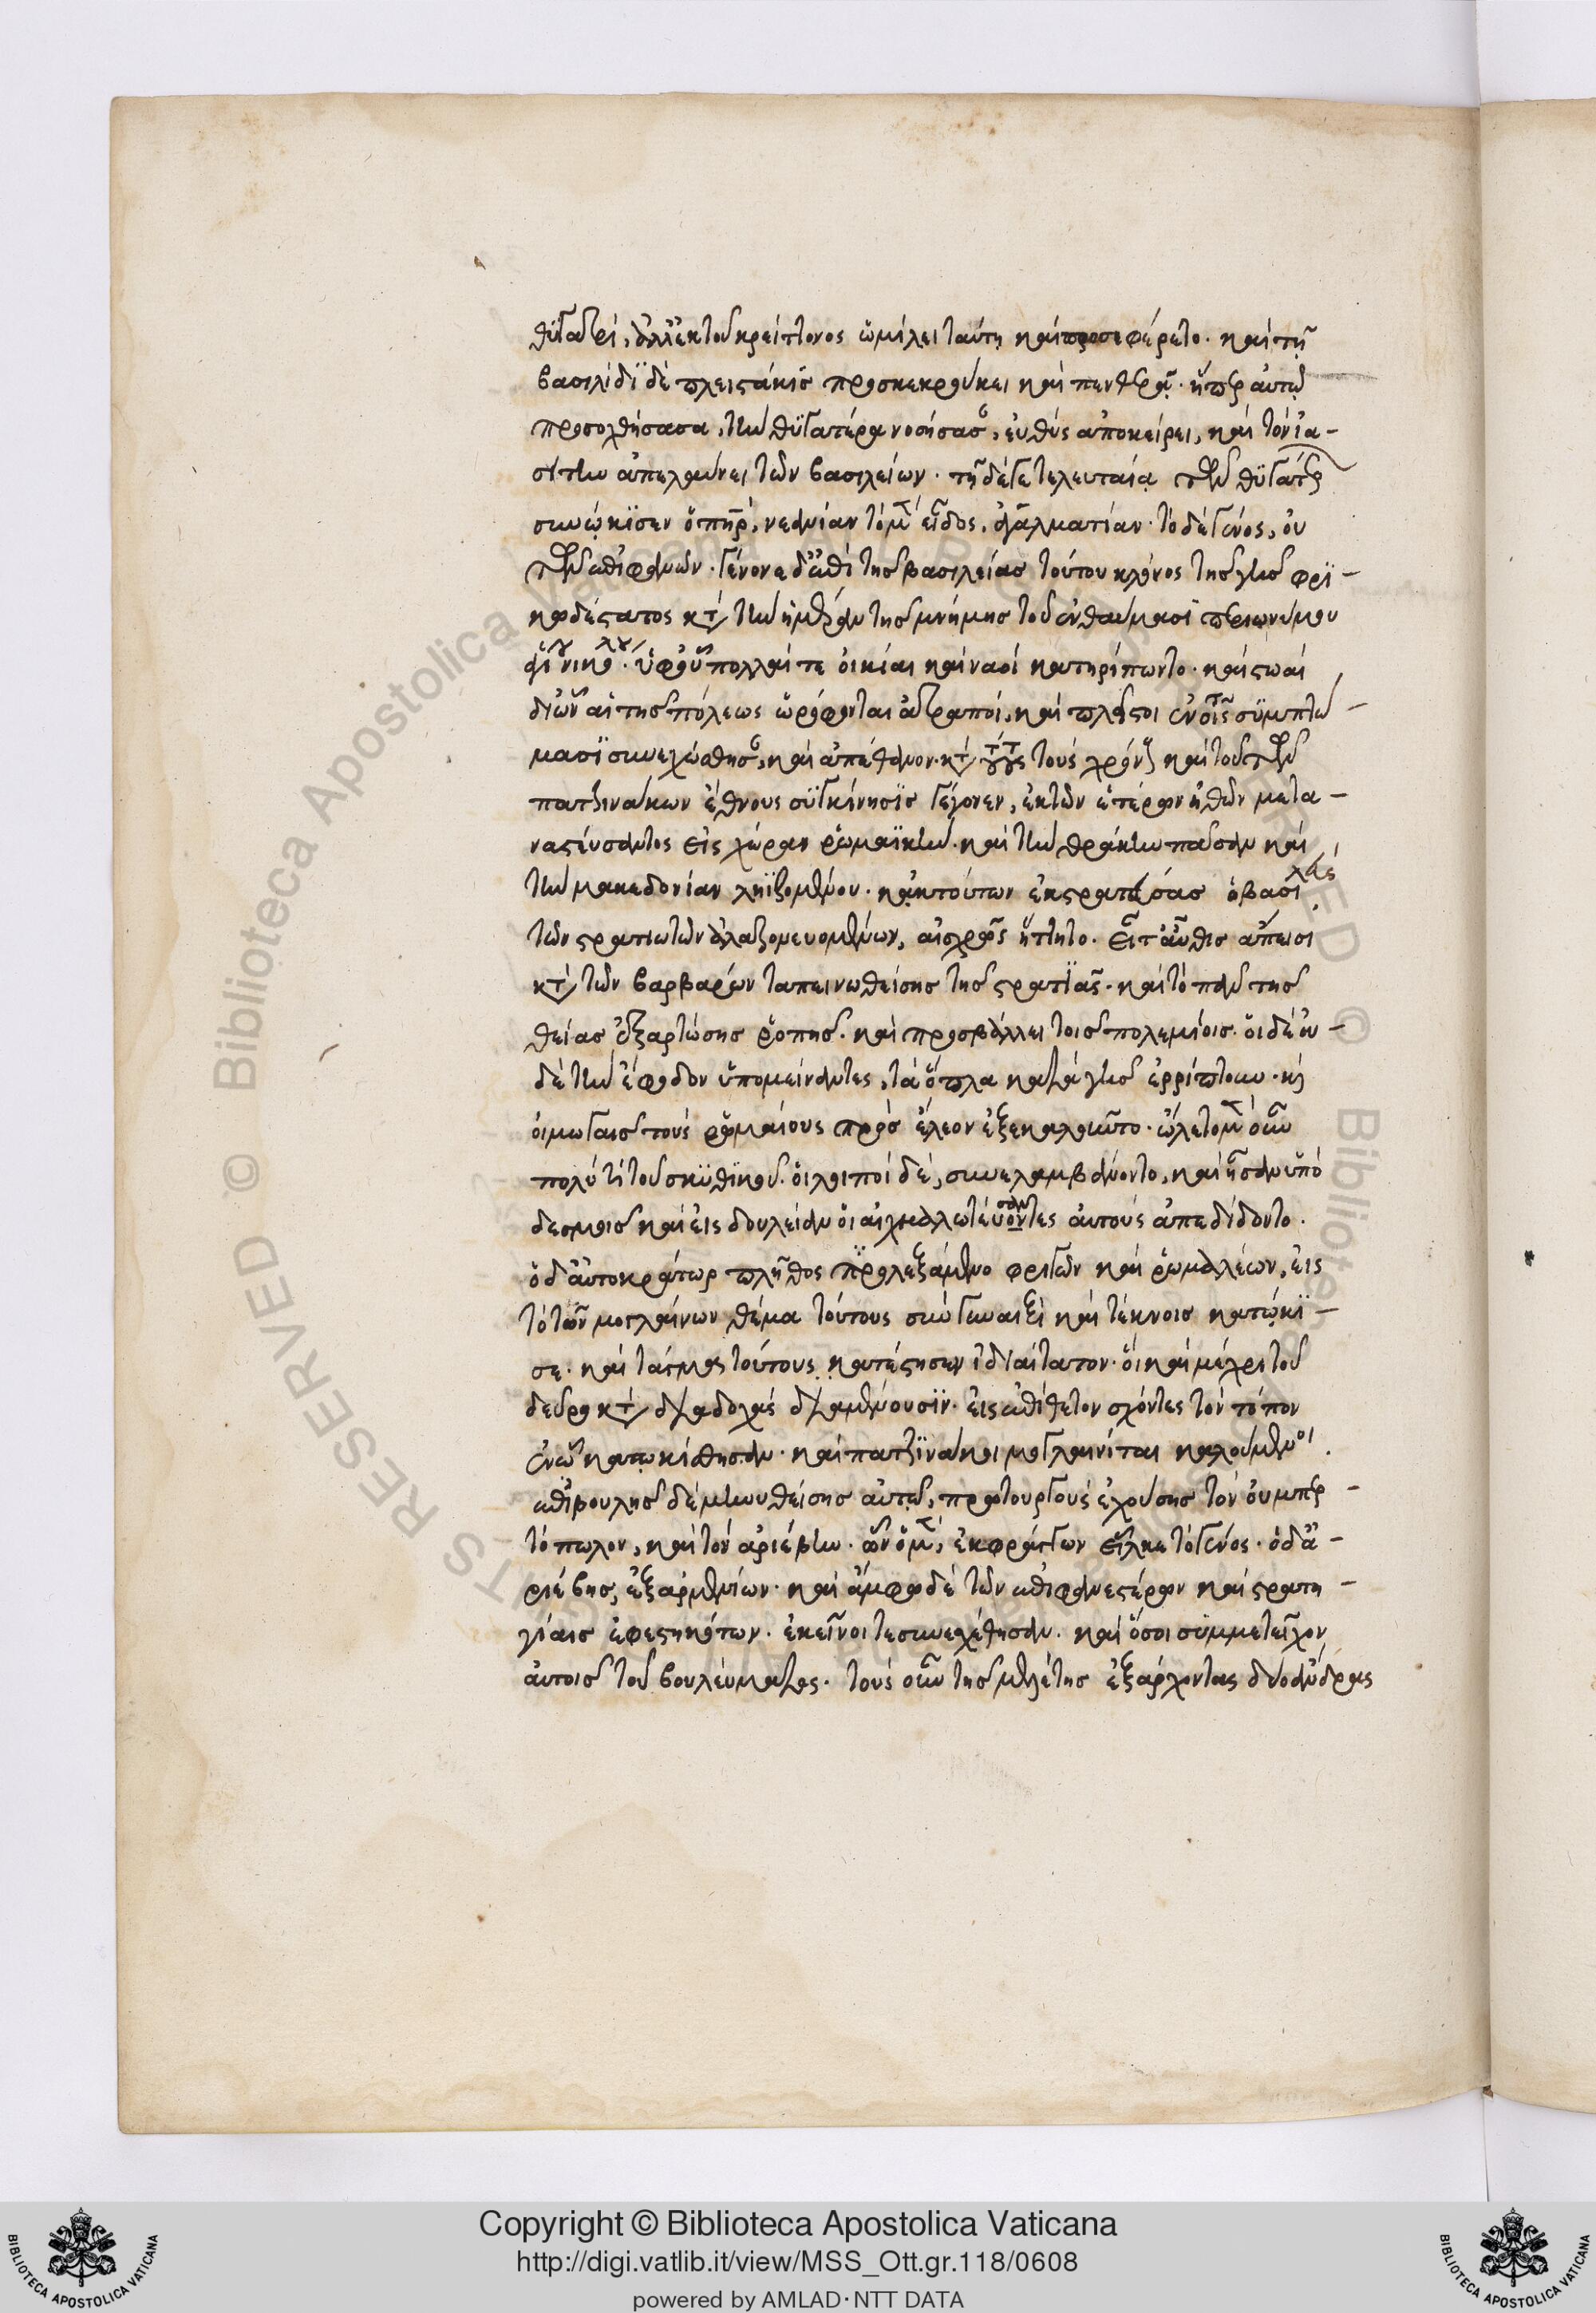 θυγατρί, ἀλλ' ἐκ τοῦ κρείττονος ὡμίλει ταύτη καὶ προσεφέρετο. καὶ τῆ
βασιλίδϊ δὲ πλειστάκις προσκεκρούκει καὶ πενθερᾶ. ἥπερ αὐτῶ
προσοχθήσασα, τὴν θϋγατέρα νοσήσασαν, εὐθὺς ἀποκείρει, καὶ τὸν ἰα-
σίτην ἀπελαύνει τῶν βασιλείων. τῆ δέ γε τελευταία τῶν θϋγατέρων
συνώκϊσεν ὁ πατὴρ, νεανίαν τὸ μὲν εἶδος, ἀγαλματίαν. τὸ δὲ γένος, οὐ
τῶν ἐπιφανῶν. γέγονε δ' ἐπὶ τῆς βασιλείας τούτου κλόνος τῆς γῆς φρϊ-
κωδέστατος κατὰ τὴν ἡμέραν τῆς μνήμης τοῦ ἐν θαύμασϊ περιωνύμου
ἁγίου νικολάου. ὑφ' οὗ πολλαί τε οἰκίαι καὶ ναοὶ κατηρίπωντο. καὶ στοαὶ
δι' ὧν αἱ τῆς πόλεως ὠρόφωνται ἀτραποί, καὶ πλεῖστοι ἐν τοῖς σϋμπτώ-
μασϊ συνεχώσθησαν, καὶ ἀπέθανον. κατὰ τούτους τοὺς χρόνους καὶ τοῦ τῶν
πατζινάκων ἔθνους σϋγκίνησϊς γέγονεν, ἐκ τῶν ἑτέρων ἠθῶν μετα-
ναστεύσαντος εἰς χώραν ῥωμαϊκὴν. καὶ τὴν θράκην πᾶσαν καὶ
τὴν μακεδονίαν ληϊζομένου. κἀκ τούτων ἐκστρατεύσας ὁ βασιλεὺς,
τῶν στρατιωτῶν ἀλαζονευομένων, αἰσχρῶς ἥττητο. εἶτ' αὖθις ἄπεισι
κατὰ τῶν βαρβάρων ταπεινωθείσης τῆς στρατϊᾶς. καὶ τὸ πᾶν τῆς
θείας ἐξαρτώσης ῥοπῆς. καὶ προσβάλλει τοῖς πολεμίοις. οἱ δὲ οὐ-
δὲ τὴν ἔφοδον ὑπομείναντες, τὰ ὅπλα κατὰ γῆς ἐρρίπτουν. καὶ
οἰμωγαῖς τοὺς ῥωμαίους πρὸς ἔλεον ἐξεκαλοῦντο. ὤλετο μὲν οὖν
πολύ τι τοῦ σκϋθϊκοῦ. οἱ λοιποὶ δέ, συνελαμβάνοντο, καὶ ἦσαν ὑπὸ
δεσμοῖς καὶ εἰς δουλείαν οἱ αἰχμαλωτεύσαντες αὐτοὺς ἀπεδίδοντο.
ὁ δ' αὐτοκράτωρ πλῆθος προλεξάμενος φριγῶν καὶ ῥωμαλέων, εἰς
τὸ τῶν μογλαίνων θέμα τούτους σὺν γυναιξὶ καὶ τέκνοις κατώκϊ-
σε. καὶ τάγμα τούτους κατέστησεν ἰδιαίτατον. οἳ καὶ μέχρι τοῦ
δεῦρο κατὰ διαδοχὰς διαμένουσϊν. εἰς ἐπίθετον σχόντες τὸν τόπον
ἐν ὧ κατωκίσθησαν. καὶ πατζϊνάκοι μογλαινῖται καλούμενοι.
ἐπιβουλῆς δὲ μηνυθείσης αὐτῶ, πρωτουργοὺς ἐχούσης τὸν οὐμπερ-
τόπωλον, καὶ τὸν ἀριέβην. ὧν ὁ μὲν, ἐκ φράγγων εἷλκε τὸ γένος. ὁ δ' ἀ-
ριέβης, ἐξ ἀρμενίων. καὶ ἄμφω δὲ τῶν ἐπιφανεστέρων καὶ στρατη-
γίαις ἐφεστηκότων. ἐκεῖνοι τε συνεσχέθησαν. καὶ ὅσοι συμμετεῖχον
αὐτοῖς τοῦ βουλεύματος. τοὺς οὖν τῆς μελέτης ἐξάρχοντας δύο ἄνδρας
Copyright © Biblioteca Apostolica Vaticana
http://digi.vatlib.it/view/MSS_Ott.gr.118/0608
powered by AMLAD·NTT DATA